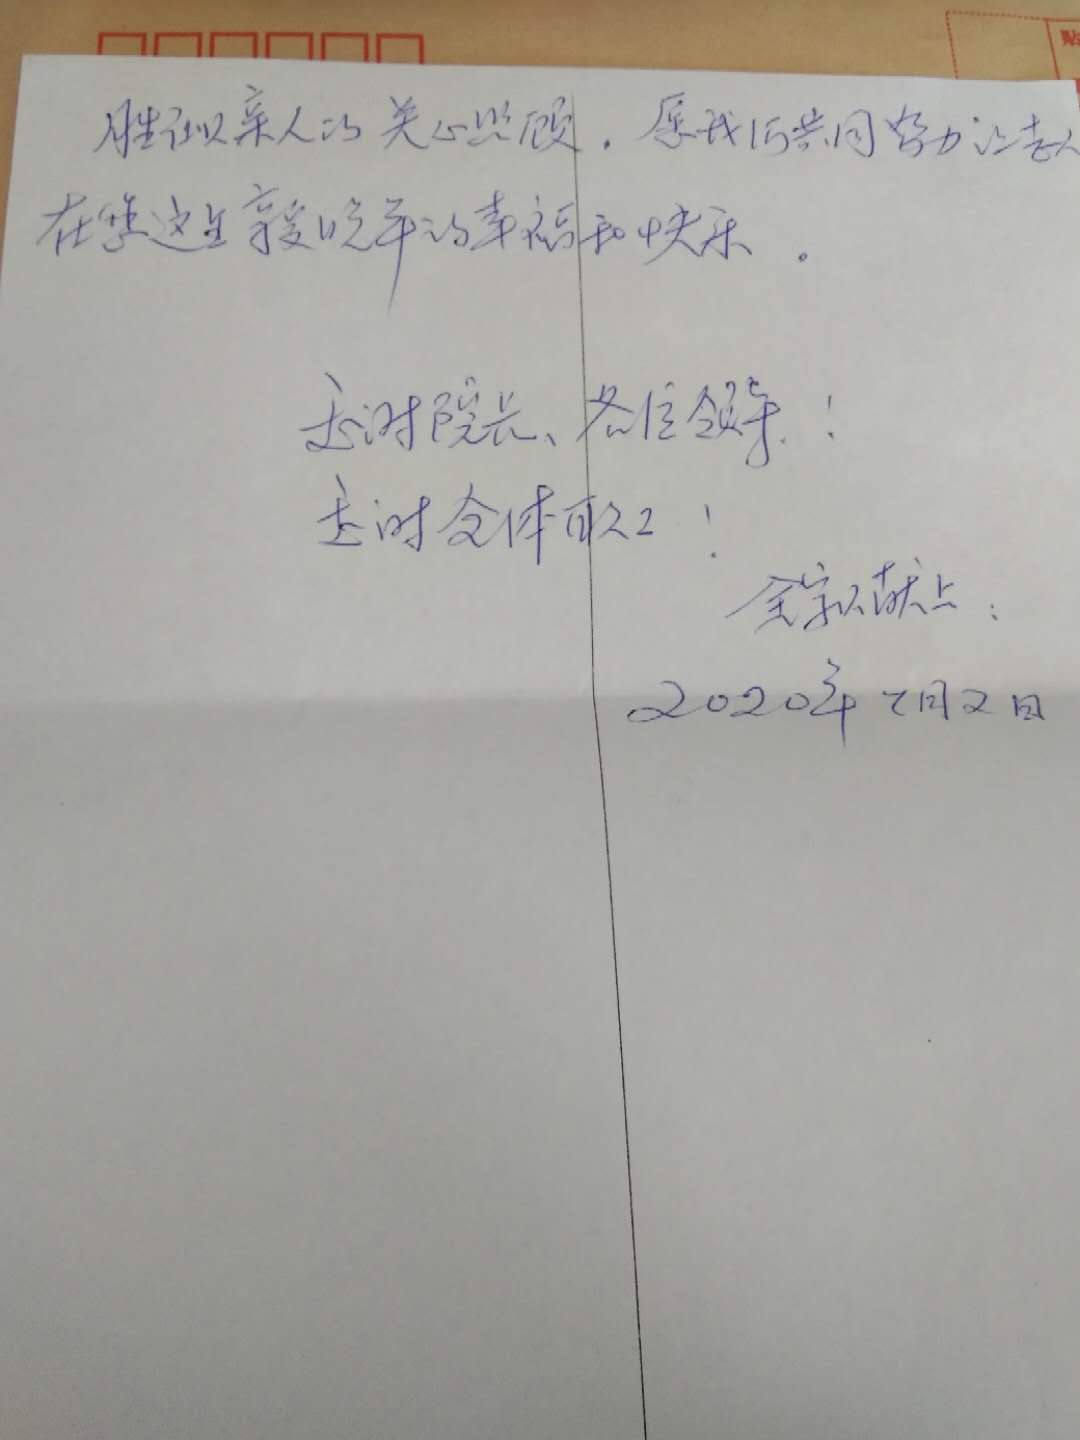 贴
胜似亲人的关心照顾.愿我们共同努力让老人
在您这里享受晚年的幸福和快乐。
感谢院长、各位领导!
感谢全体职工!
全家人献上:
2020年7月2日